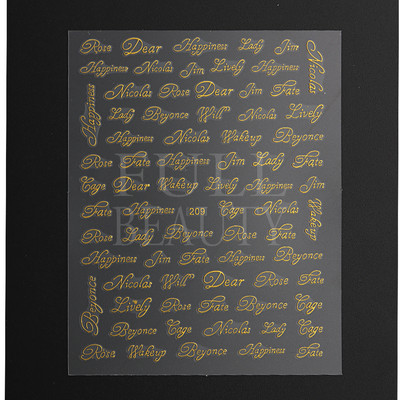 Rose Dear Happiness Lady Jim Nicolas
Happiness Nicolas Jim Lively Happiness
Happiness Nicolas Rose Dear Jim Fate
Lady Beyonce Will Nicolas Lively
Happiness Nicolas Wakeup Beyonce
Rose Fate Happiness Jim Lady Fate
Cage Dear Wakeup Lively Happiness Jim
Fate Happiness 209 Cage Nicolas Wakeup
Rose Lady Beyonce Rose Fate
Happiness Jim Fate Happiness Fate
Beyonce Nicolas Will Dear Rose Fate
Lively Rose Fate Beyonce Cage
Beyonce Cage Nicolas Lady Cage
Rose Wakeup Beyonce Happiness Fate
FULL
BEAUTY